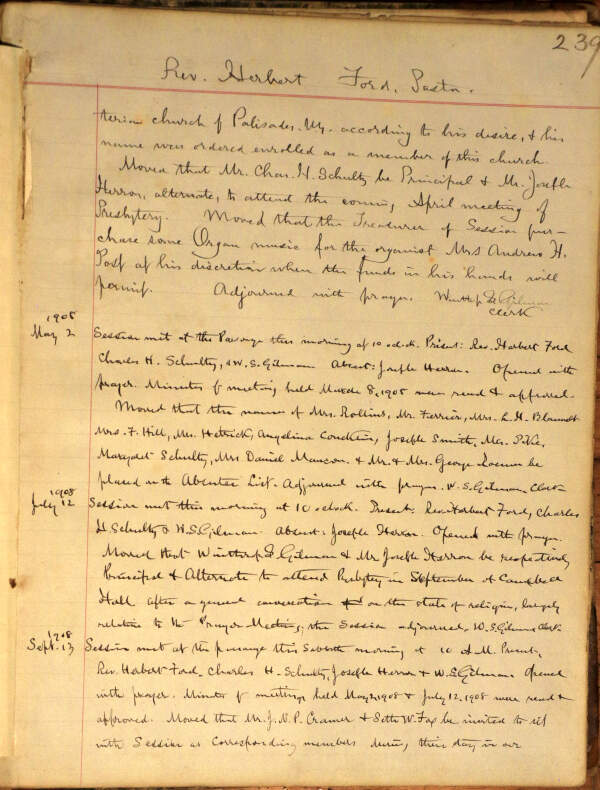 239
Rev. Herbert Ford, Pastor.
terian church of Palisades, N.Y. according to his desire, & his
name was ordered enrolled as a member of this church.
Moved that Mr. Chas. H. Schultz be Principal & Mr. Joseph
Herron, alternate, to attend the coming April meeting of
Presbytery. Moved that the Treasurer of Session pur-
chase some Organ music for the organist Mrs Andrew H.
Post at his discretion when the funds in his hands will
permit. Adjourned with prayer. Winthrop S. Gilman
Clerk
1908
May 2
Session met at the Parsonage this morning at 10 o'clock. Present: Rev. Herbert Ford
Charles H. Schultz, & W.S. Gilman. Absent: Joseph Herron. Opened with
prayer. Minutes of meeting held March 8, 1908 were read & approved.
Moved that the names of Mrs. Rollins, Mr. Ferrier, Mrs. L.H. Blauvelt
Mrs. F. Hill, Mrs. Hettrick, Angelina Conklin, Joseph Smith, Mrs.
Margaret Schultz, Mrs Daniel Mancon & Mr. & Mrs. George be
placed on the Absentee List. Adjourned with prayer. W.S. Gilman, Clerk
1908
July 12
Session met this morning at 10 o'clock. Present: Rev. Herbert Ford, Charles
H. Schultz & W.S. Gilman. Absent: Joseph Herron. Opened with prayer.
Moved that Winthrop S. Gilman & Mr Joseph Herron be respectively
Principal & Alternate to attend Presbytery in September at Campbell
Hall after a general conversation on the state of religion, largely
relative to the Prayer Meeting, the Session adjourned. W.S. Gilman, Clerk
1908
Sept. 13
Session met at the parsonage this Sabbath morning at 10 A.M. Present,
Rev. Herbert Ford, Charles H. Schultz, Joseph Herron & W.S. Gilman. Opened
with prayer. Minutes of meetings held May 2, 1908 & July 12, 1908 were read &
approved. Moved that Mr. J.N.P. Cramer & Seth W. Fox be invited to sit
with Session as Corresponding members during their stay in our